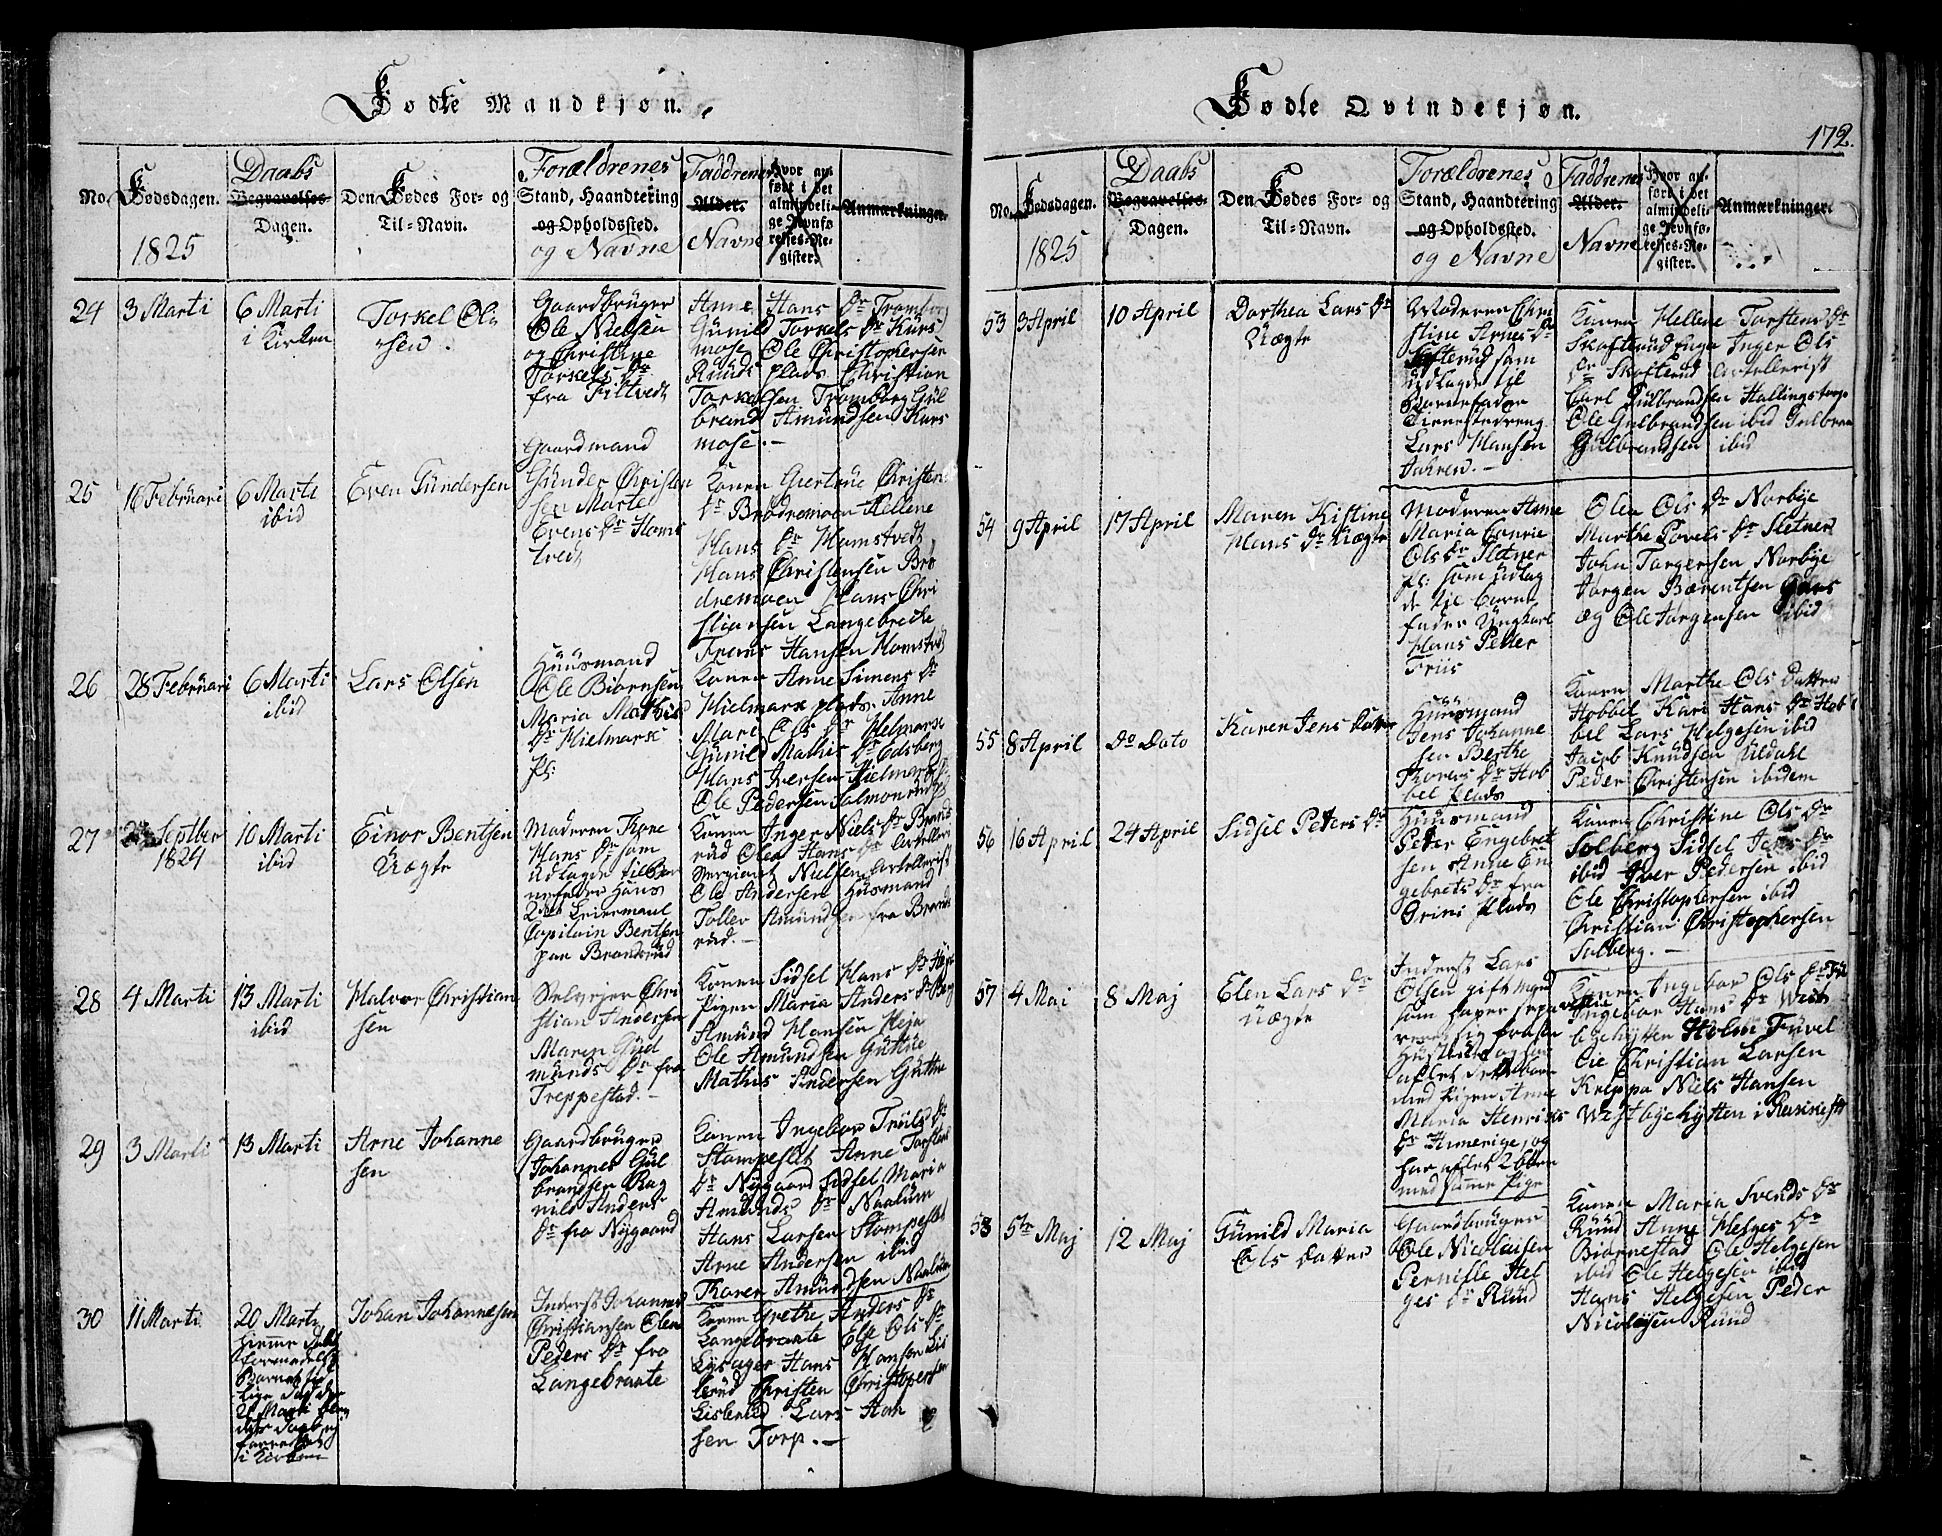 Fødte Mandkjøn.
No.
Fødsdagen.
1825
Daabs
Begravelses-
Dagen.
Den Fødes For- og
Til-Navn.
Forældrenes
Stand, Haandtering
og Opholdssted.
og Navne
Faddrenes
Alder.
Navne
Hvor an-
ført i det
almindeli-
ge Jevnfø-
relses-Re-
gister.
Anmærkninger.
24
3 Marti
6 Marti
i Kirken
Torkel Ol
sen.
Gaardbruger
Ole Nielsen
og Christine
Torkels Dr
fra Filtvedt
Anne Hans Dr Tromborg
Gunild Torkels Dr Kurs
mose Ole Christophersen
Ruuds plads Christian
Torkelsen Tromborg Gul
brand Amundsen Kurs
mose.-
25
16 Februari
6 Marti
ibid
Even Gundersen
Gaardmand
Gunder Christen
sen Marte
Evens Dr Homs
tvedt
Konen Giertrue Christens
Dr Brødremoen Hellene
Hans Dr Homstvedt
Hans Christensen Brø
dremoen Hans Chri
stiansen Langebrede
Frans Hansen Homstvedt
26
28 Februari
6 Marti
ibid
Lars Olsen
Huusmand
Ole Biørnsen
Maria Mathis
Dr Hielmark
pl:
Konen Anne Simens Dr
Hielmark plads. Anne
Mari Ols Dr Helmark
Gunild Mathis Dr Edsberg
Hans Iversen Hielmark
Ole Pedersen Salmonrud
27
Septber
1824
10 Marti
ibid
Einor Bentsen
Uægte
Moderen Thone
Hans Dr som
udlagde til Bar
nefader hans
2det Leiermaal
Capitain Bentsen
paa Brandsrud
Konen Inger Niels Dr Brands
rud Olea Hans Dr
Sergiant Nielsen Artellerist
Ole Andersen Husmand
Tollev Amundsen fra Brands
rud.-
28
4 Marti
13 Marti
ibid
Halvor Christian
sen
Selvejer Chri
stian Andersen
Maren Gud
munds Dr fra
Treppestad.-
Konen Sidsel Hans Dr
Pigen Maria Anders Dr Berg
Amund Hansen Heja
Ole Amundsen Guttue
Mathis Andersen Guttu
29
3 Marti
13 Marti
Arne Johanne
sen
Gaardbruger
Johannes Gul
brandsen Rag
nild Anders
Dr fra Nygaard
Konen Ingebor Truls Dr
Stampeslet Anne Torstens
Dr Nygaard Sidsel Maria
Amunds Dr Naalum
Hans Larsen Stompeslet
Arne Andersen ibid
Thorer Amundsen Naalum
30
11 Marti
20 Marti
Hjemme Døbt
formedelst
i Kirken
Johan Johannesen
Inderst Johannes
Christiansen Olea
Peders Dr fra
Langebraate
Konen Grethe Anders Dr
Langebraate Else Ols Dr
Lysager Hans Hansen Lis
lerud Christen Christopers
Lislerud Lars Han
sen Torp.-
Fødte Qvindekjøn.
172.
No.
Fødsdagen.
1825
Daabs
Begravelses-
Dagen.
Den Fødes For- og
Til-Navn.
Forældrenes
Stand, Haandtering
og Opholdssted.
og Navne
Faddrenes
Alder.
Navne
Hvor an-
ført i det
almindeli-
ge Jevnfø-
relses-Re-
gister.
Anmærkninger.
53
3 April
10 April
Dorthea Lars Dr
Uægte
Moderen Chri
stine Arnes Dr
Skofterud som
udlagde til
Barnefader
Lars Hansen
Jahren.-
Konen Hellene Torstens Dr
Skofterud Inger Ols
Dr Skofterud Artellerist
Carl Gulbrandsen Hallingstorp
Ole Gulbrandsen ibid Gulbran
Gulbrandsen ibid
54
9 April
17 April
Maren Kistine
Hans Dr Uægte
Moderen Anne
Maria
Ols Dr Sletner
pl: som udlag
de til Barne
fader Ungkarl
Hans Peder
Friis
Olea Ols Dr Norbye
Marthe Povels Dr Sletner
John Torgersen Norbye
Jørgen Bærentsen
og Ole Jørgensen ibid
55
8 April
Do Dato
Karen Jens Datter
Huusmand
Jens Johanne
sen Berthe
Thorers Dr Hob
bel plads
Konen Marthe Ols Datter
Hobbel Kari Hans Dr Hob
bel Lars Helgesen ibid
Jacob Knudsen Uldahl
Peder Christensen ibidem
56
16 April
24 April
Sidsel Peters Dr
Huusmand
Peter Engebret
sen Anne En
gebrets Dr fra
Grini Plads
Konen Christine Ols Dr
Solberg Sidsel Jens Dr
ibid Iver Pedersen ibid
Ole Christophersen ibid
Christian Christophersen
Solberg.-
57
4 Mai
8 Maj
Elen Lars Dr
Uægte
Inderst Lars
Olsen gift mand
som haver separe
reret sig fra sin
Hustrue og har
aflet dette barn
med Pigen Anne
Maria Henriks
Dr Homerige, og
har aflet 2 børn
med samme Pige
Konen Ingebor Ols Dr
Ingebor Hans Dr West
byehytten Holm Tuvel
Christian Larsen
Kreppa Niels Hansen
Westbyehytten i
58
5te Maj
12 Maj
Gunild Maria
Ols Datter
Gaardbruger
Ole Nicolaisen
Pernille Hel
ges Dr Ruud
Konen Maria Svends Dr
Ruud Anne Helges Dr
Biørnestad Ole Helgesen
ibid Ole Helgesen ibid
Hans Helgesen Peder
Nicolaysen Ruud